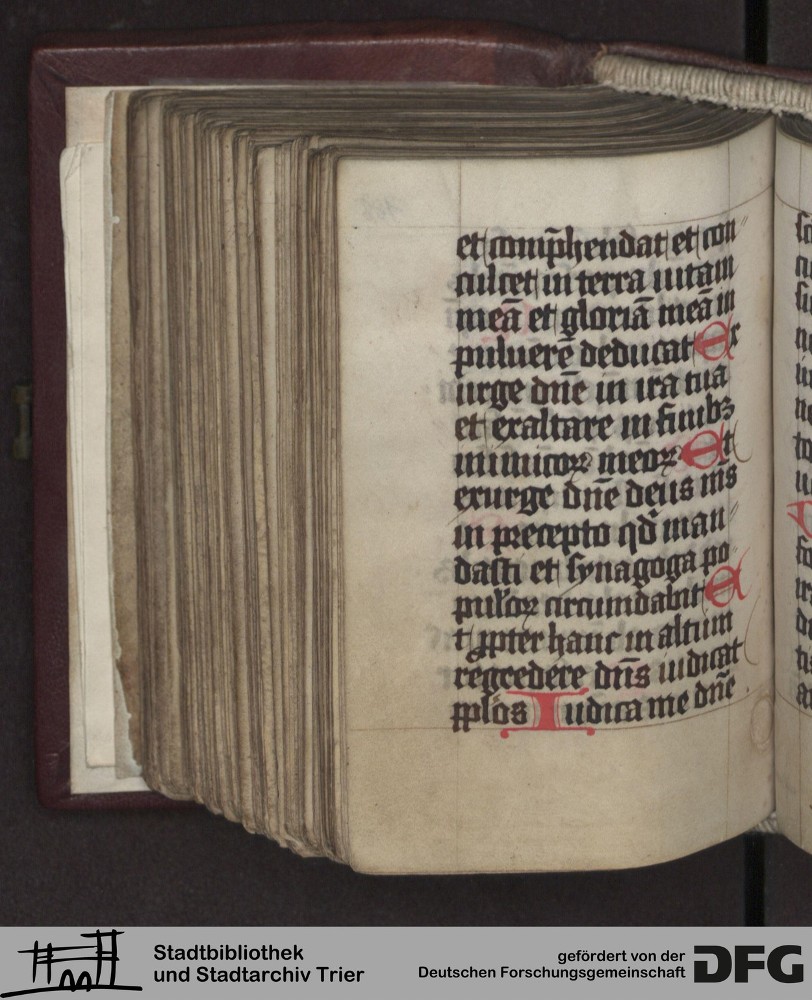 et comp̄hendat et con
culcet in terra uitam
meā et gloriā meā in
puluerē deducat Ex
urge dn̄e in ira tua
et exaltare in finibꝫ
inimicoꝝ meoꝝ Et
exurge dn̄e deus m̄s
in precepto qd̄ man
dasti et synagoga po
puloꝝ circumdabit te E
t ꝓpter hanc in altum
regredere dn̄s iudicat
pp̄los Iudica me dn̄e
Stadtbibliothek
und Stadtarchiv Trier
gefördert von der
Deutschen Forschungsgemeinschaft
DFG